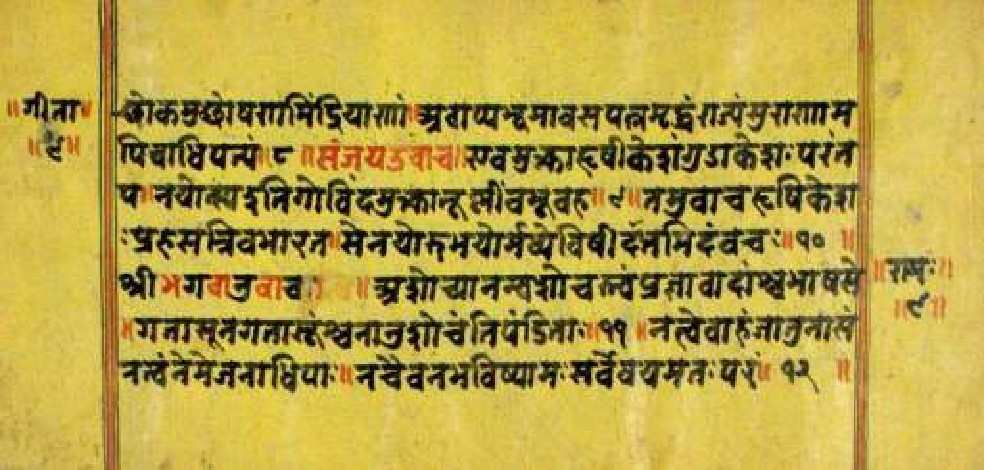 ॥गीता॥
॥९॥
छोकमुछोषणमिंद्रियाणां॥अवाप्यभूमावसपत्नमृद्धंराज्यंसुराणाम
पिवाधिपत्यं॥८॥संजयउवाच॥एवमुक्त्वाहृषीकेशंगुडाकेशः परंत
प॥नयोत्स्यइतिगोविंदमुक्त्वातूष्णींबभूवह॥९॥तमुवाचहृषिकेश
ःप्रहसन्निवभारत॥सेनयोरुभयोर्मध्येविषीदंतमिदंवचः॥१०॥
श्रीभगवानुवाच॥अशोच्यानन्वशोचस्त्वंप्रज्ञावादांश्चभाषसे
॥गतासूनगतासूंश्चनानुशोचंतिपंडिताः॥११॥नत्वेवाहंजातुनासं
नत्वंनेमेजनाधिपाः॥नचैवनभविष्यामःसर्वेवयमतःपरं॥१२॥
॥रामः॥
॥९